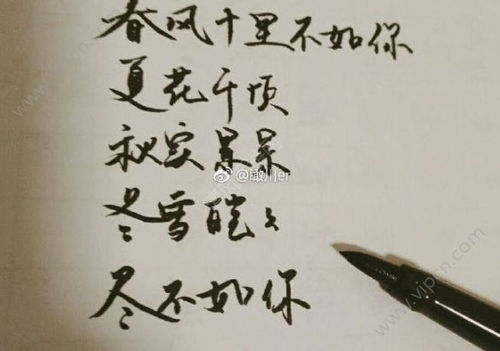 春风十里不如你
夏花千顷
秋实累累
冬雪皑々
尽不如你
www.vipcn.com